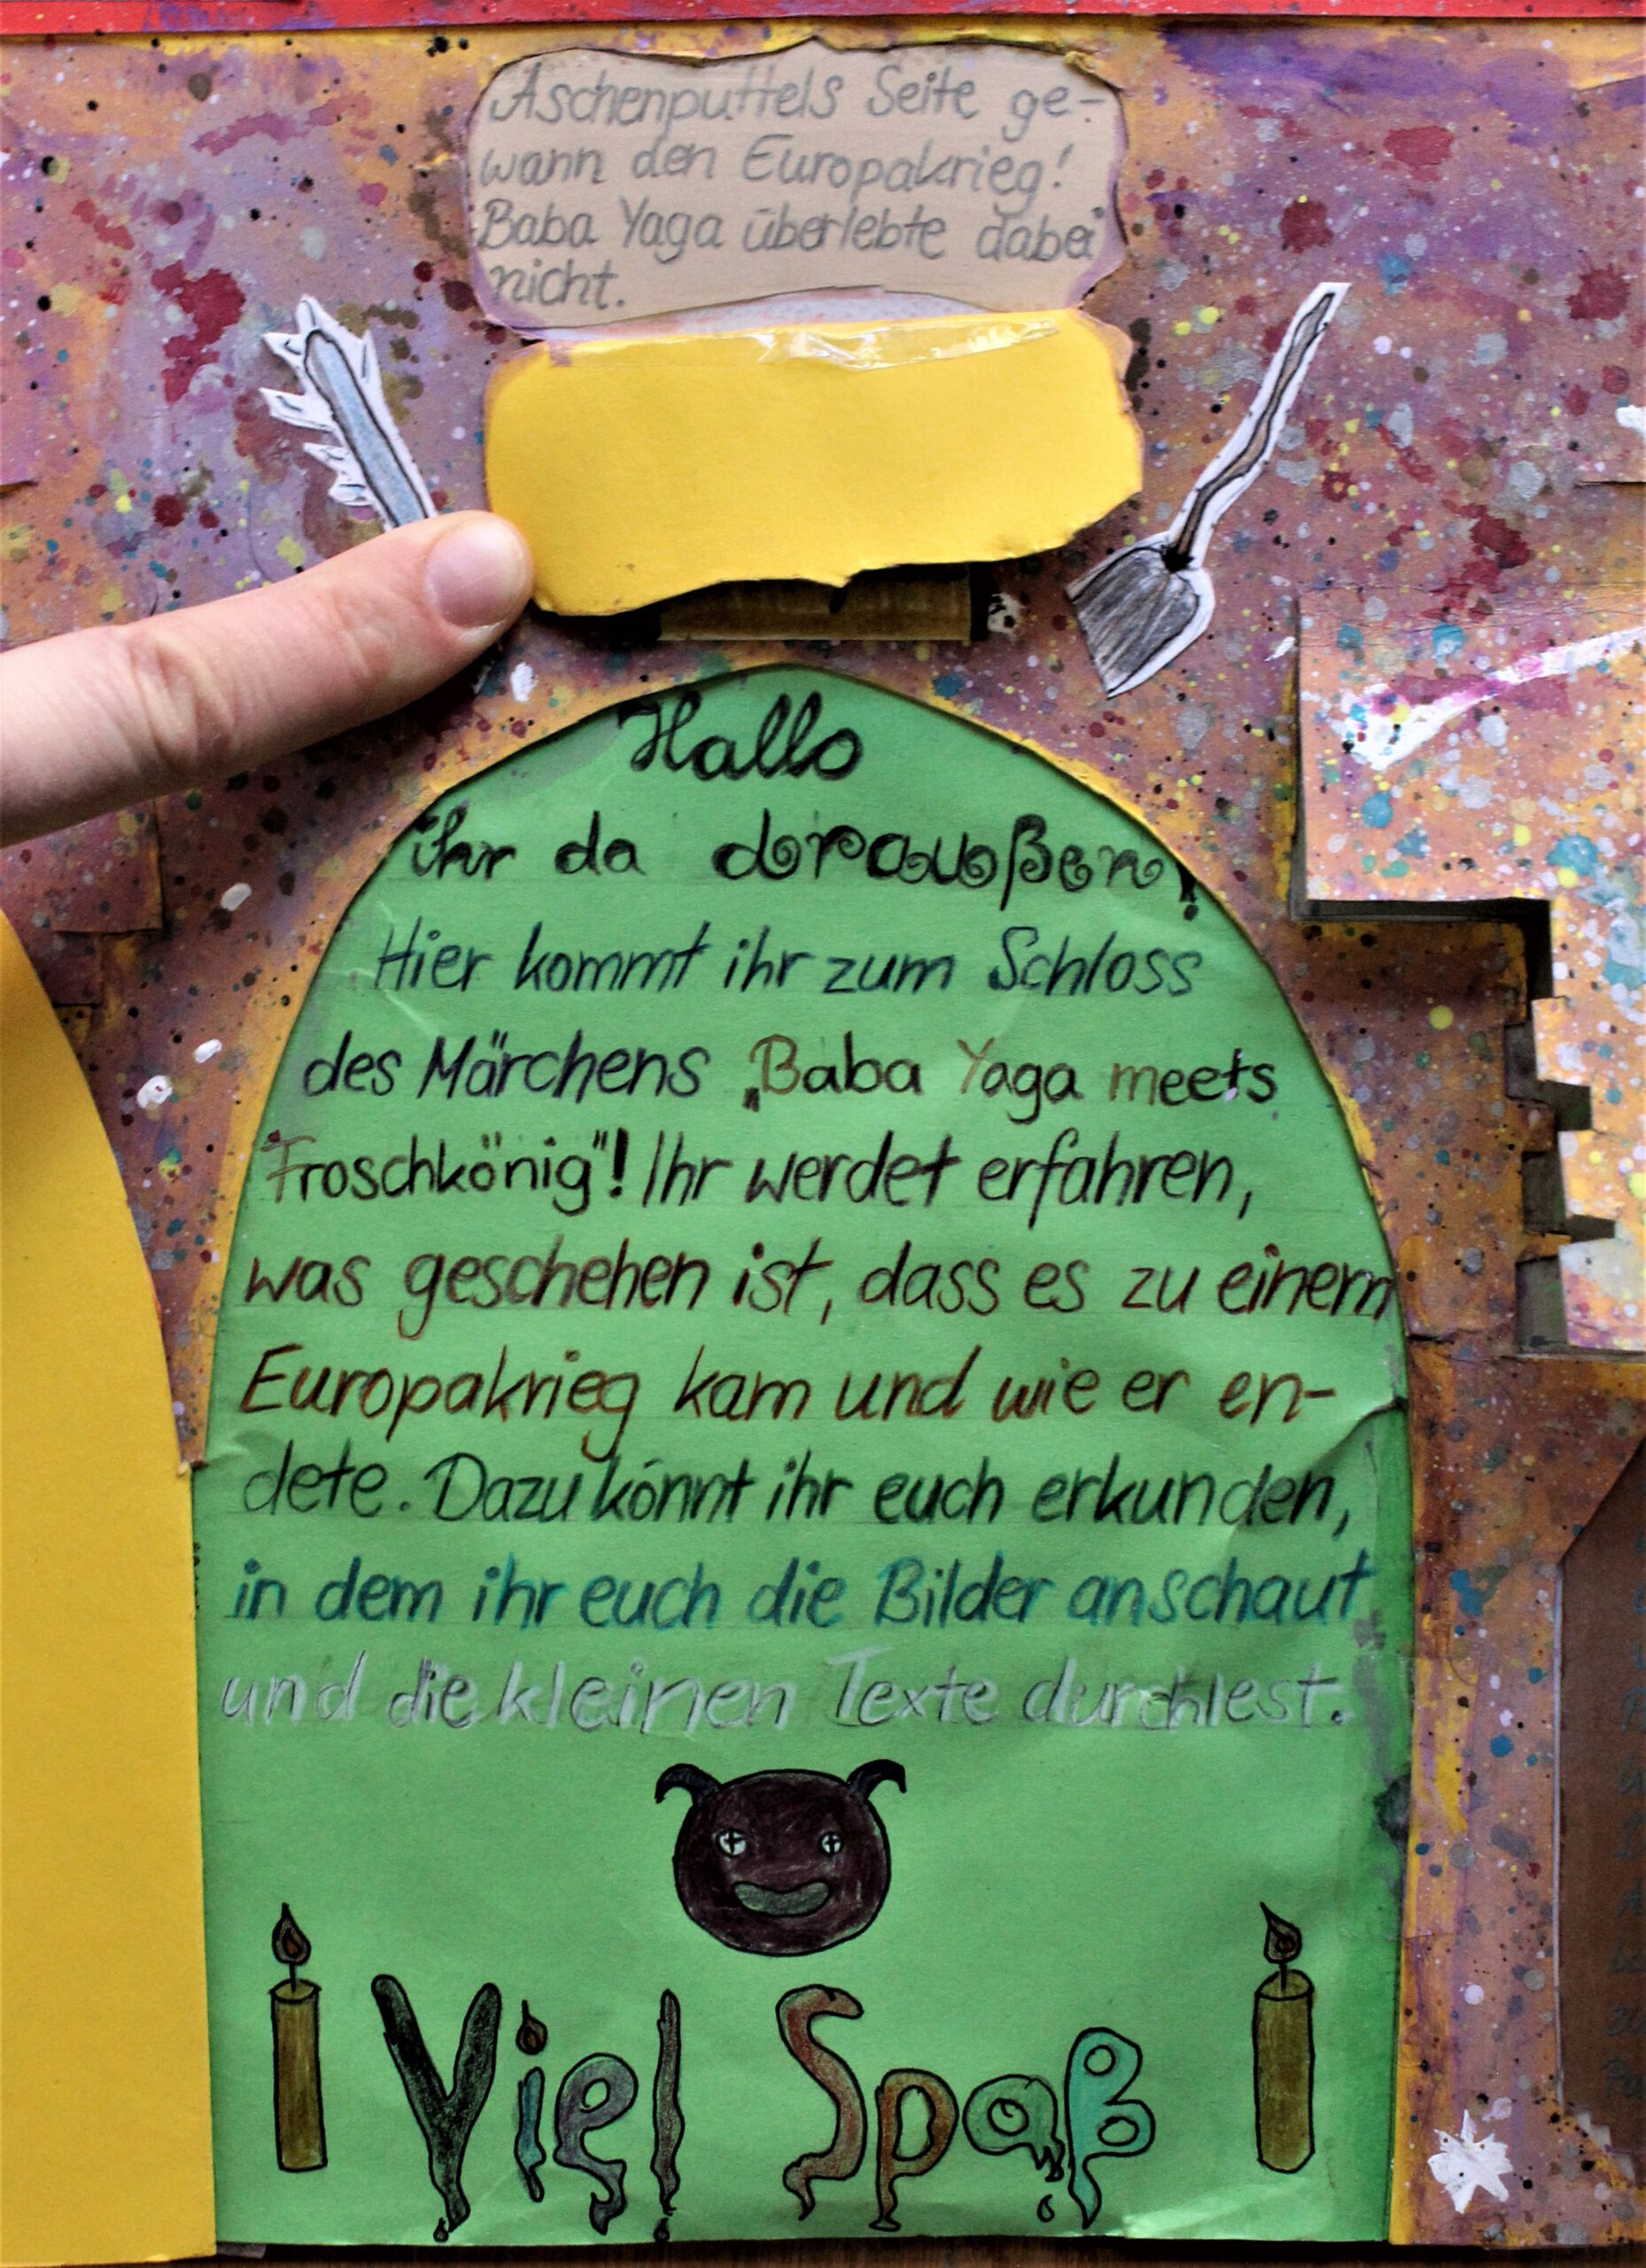 Aschenputtels Seite ge-
wann den Europakrieg!
Baba Yaga überlebte dabei
nicht.
Hallo
ihr da draußen!
Hier kommt ihr zum Schloss
des Märchens „Baba Yaga meets
Froschkönig"! Ihr werdet erfahren,
was geschehen ist, dass es zu einem
Europakrieg kam und wie er en-
dete. Dazu könnt ihr euch erkunden,
in dem ihr euch die Bilder anschaut
und die kleinen Texte durchlest.
Viel Spaß